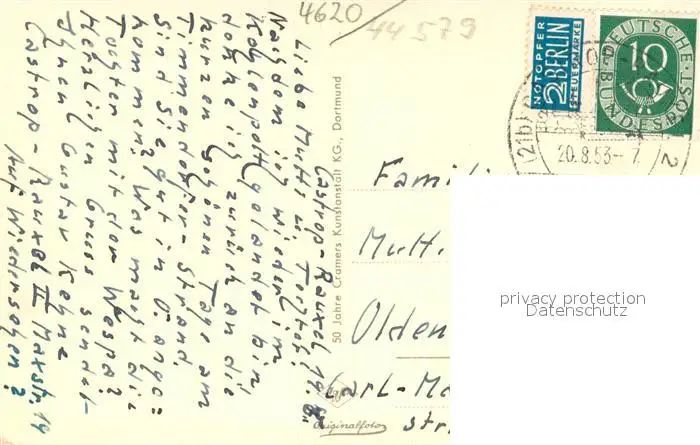 4620
44579
Castrop-Rauxel 19. 8.
Liebe Mutti u. Tochter!
Nachdem ich wieder im
Kohlenpott gelandet bin
denke ich zurück an die
kurzen schönen Tage am
Timmendorfer-Strand.
Sind Sie gut in O. ange=
kommen? Was macht die
Tochter mit der Wespa?
Herzlichen Gruss sendet
Ihnen Gustav Kehne
Castrop-Rauxel II Maxstr. 19
Auf Wiedersehen?
50 Jahre Cramers Kunstanstalt KG., Dortmund
Originalfoto
NOTOPFER
2 BERLIN
STEUERMARKE
DEUTSCHE
10
BUNDESPOST
(21b)
20.8.53-7
2
Famili
Mutt.
Olden
Carl-Ma
str.
privacy protection
Datenschutz